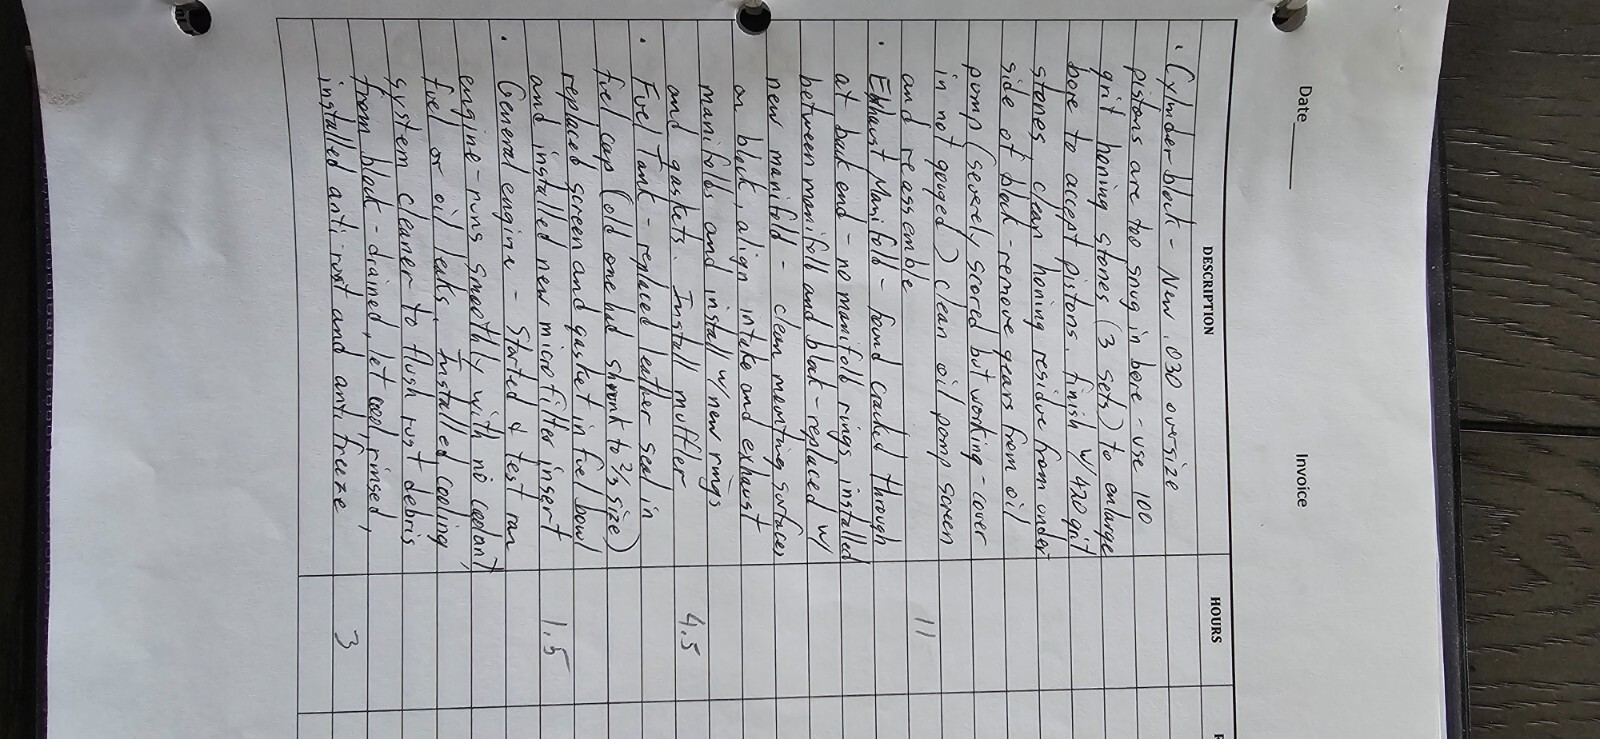 Date______ Invoice
DESCRIPTION HOURS
· Cylinder block - New .030 oversize
pistons are too snug in bore - use 100
grit honing stones (3 sets) to enlarge
bore to accept pistons. finish w/ 420 grit
stones, clean honing residue from under
side of block - remove gears from oil
pump (severely scored but working - cover
in not gouged) clean oil pump screen
and reassemble 11
· Exhaust Manifold - found cracked through
at back end - no manifold rings installed
between manifold and block - replaced w/
new manifold - clean mounting surfaces
on block, align intake and exhaust
manifolds and install w/ new rings
and gaskets. Install muffler 4.5
· Fuel Tank - replaced leather seal in
fuel cap (old one had shrunk to 2/3 size)
replaced screen and gasket in fuel bowl
and installed new micro filter insert 1.5
· General engine - Started & test ran
engine - runs smoothly with no coolant,
fuel or oil leaks. Installed cooling
system cleaner to flush rust debris
from block - drained, let cool, rinsed,
installed anti rust and anti freeze 3